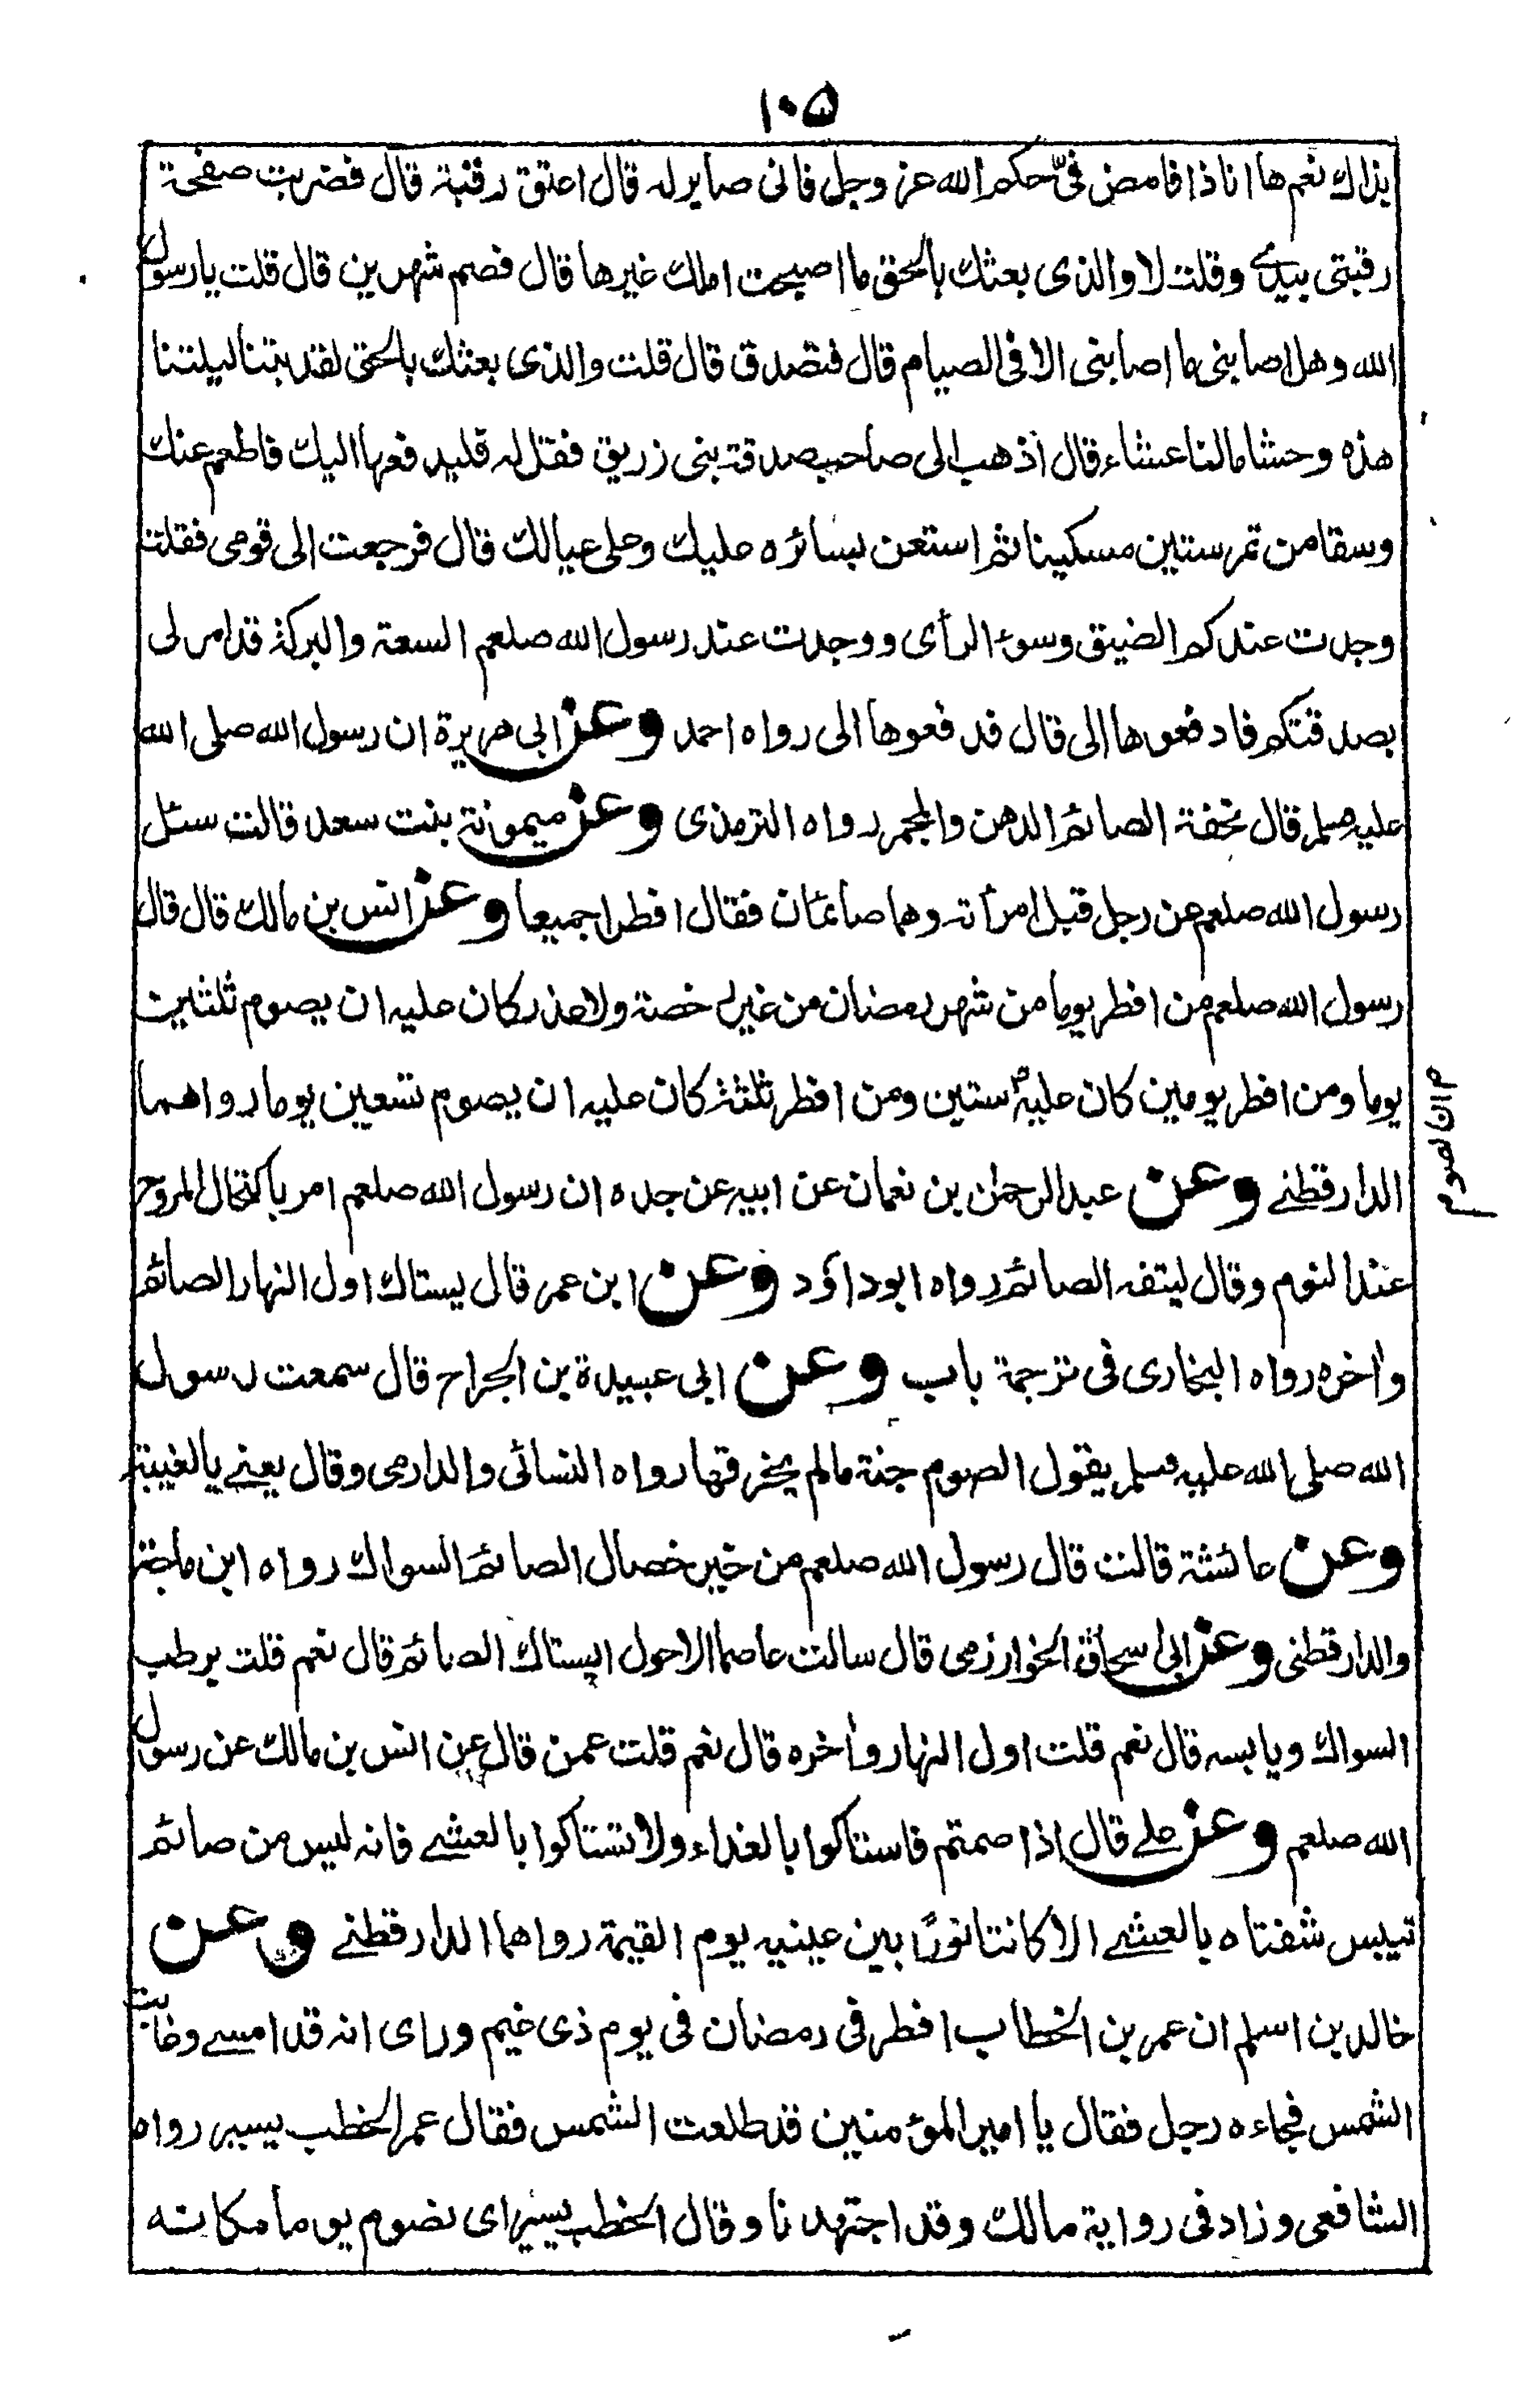 ١٠٥
بذاك نعم ها انا ذا فامض فىّ حكم الله عز وجل فانى صابر له قال اعتق رقبة قال فضربت صفحة
رقبتى بيدى وقلت لا والذى بعثك بالحق ما اصبحت املك غيرها قال فصم شهرين قال قلت يا رسول
الله وهل اصابنى ما اصابنى الا فى الصيام قال فتصدق قال قلت والذى بعثك بالحق لقد بتنا ليلتنا
هذه وحشا مالنا عشاء قال اذهب الى صاحب صدقة بنى زريق فقل له فليدفعها اليك فاطعم عنك
وسقا من تمر ستين مسكينا ثم استعن بسائره عليك وعلى عيالك قال فرجعت الى قومى فقلت
وجدت عندكم الضيق وسوء الرأى ووجدت عند رسول الله صلعم السعة والبركة قد امر لى
بصدقتكم فادفعوها الى قال فدفعوها الى رواه احمد وعن ابى هريرة ان رسول الله صلى الله
عليه وسلم قال تحفة الصائم الدهن والمجمر رواه الترمذى وعن ميمونة بنت سعد قالت سئل
رسول الله صلعم عن رجل قبل امرأته وهما صائمان فقال افطرا جميعا وعن انس بن مالك قال قال
رسول الله صلعم من افطر يوما من شهر رمضان من غير رخصة ولا عذر كان عليه ان يصوم ثلثين
يوما ومن افطر يومين كان عليه ستين ومن افطر ثلثة كان عليه ان يصوم تسعين يوما رواهما
م ان يصوم
الدارقطنے وعن عبد الرحمٰن بن نعمان عن ابيه عن جده ان رسول الله صلعم امر باكتحال المروح
عند النوم وقال ليتقه الصائم رواه ابو داؤد وعن ابن عمر قال يستاك اول النهار الصائم
واٰخره رواه البخارى فى ترجمة باب وعن ابى عبيدة بن الجراح قال سمعت رسول
الله صلى الله عليه وسلم يقول الصوم جنة مالم يخرقها رواه النسائى والدارمى وقال يعنے بالغيبة
وعن عائشة قالت قال رسول الله صلعم من خير خصال الصائم السواك رواه ابن ماجة
والدارقطنى وعن ابى اسحاق الخوارزمى قال سالت عاصما الاحول ايستاك الصائم قال نعم قلت برطب
السواك ويابسه قال نعم قلت اول النهار واٰخره قال نعم قلت عمن قال عن انس بن مالك عن رسول
الله صلعم وعن علے قال اذا صمتم فاستاكوا بالغداء ولا تستاكوا بالعشے فانه ليس من صائم
تيبس شفتاه بالعشے الا كانتا نورًا بين عينيه يوم القيمة رواهما الدارقطنے وعن
خالد بن اسلم ان عمر بن الخطاب افطر فى رمضان فى يوم ذى غيم وراى انه قد امسے وغابت
الشمس فجاءه رجل فقال يا امير المؤمنين قد طلعت الشمس فقال عمر الخطب يسير رواه
الشافعى وزاد فى رواية مالك وقد اجتهدنا وقال الخطب يسير اى نصوم يوما مكانه